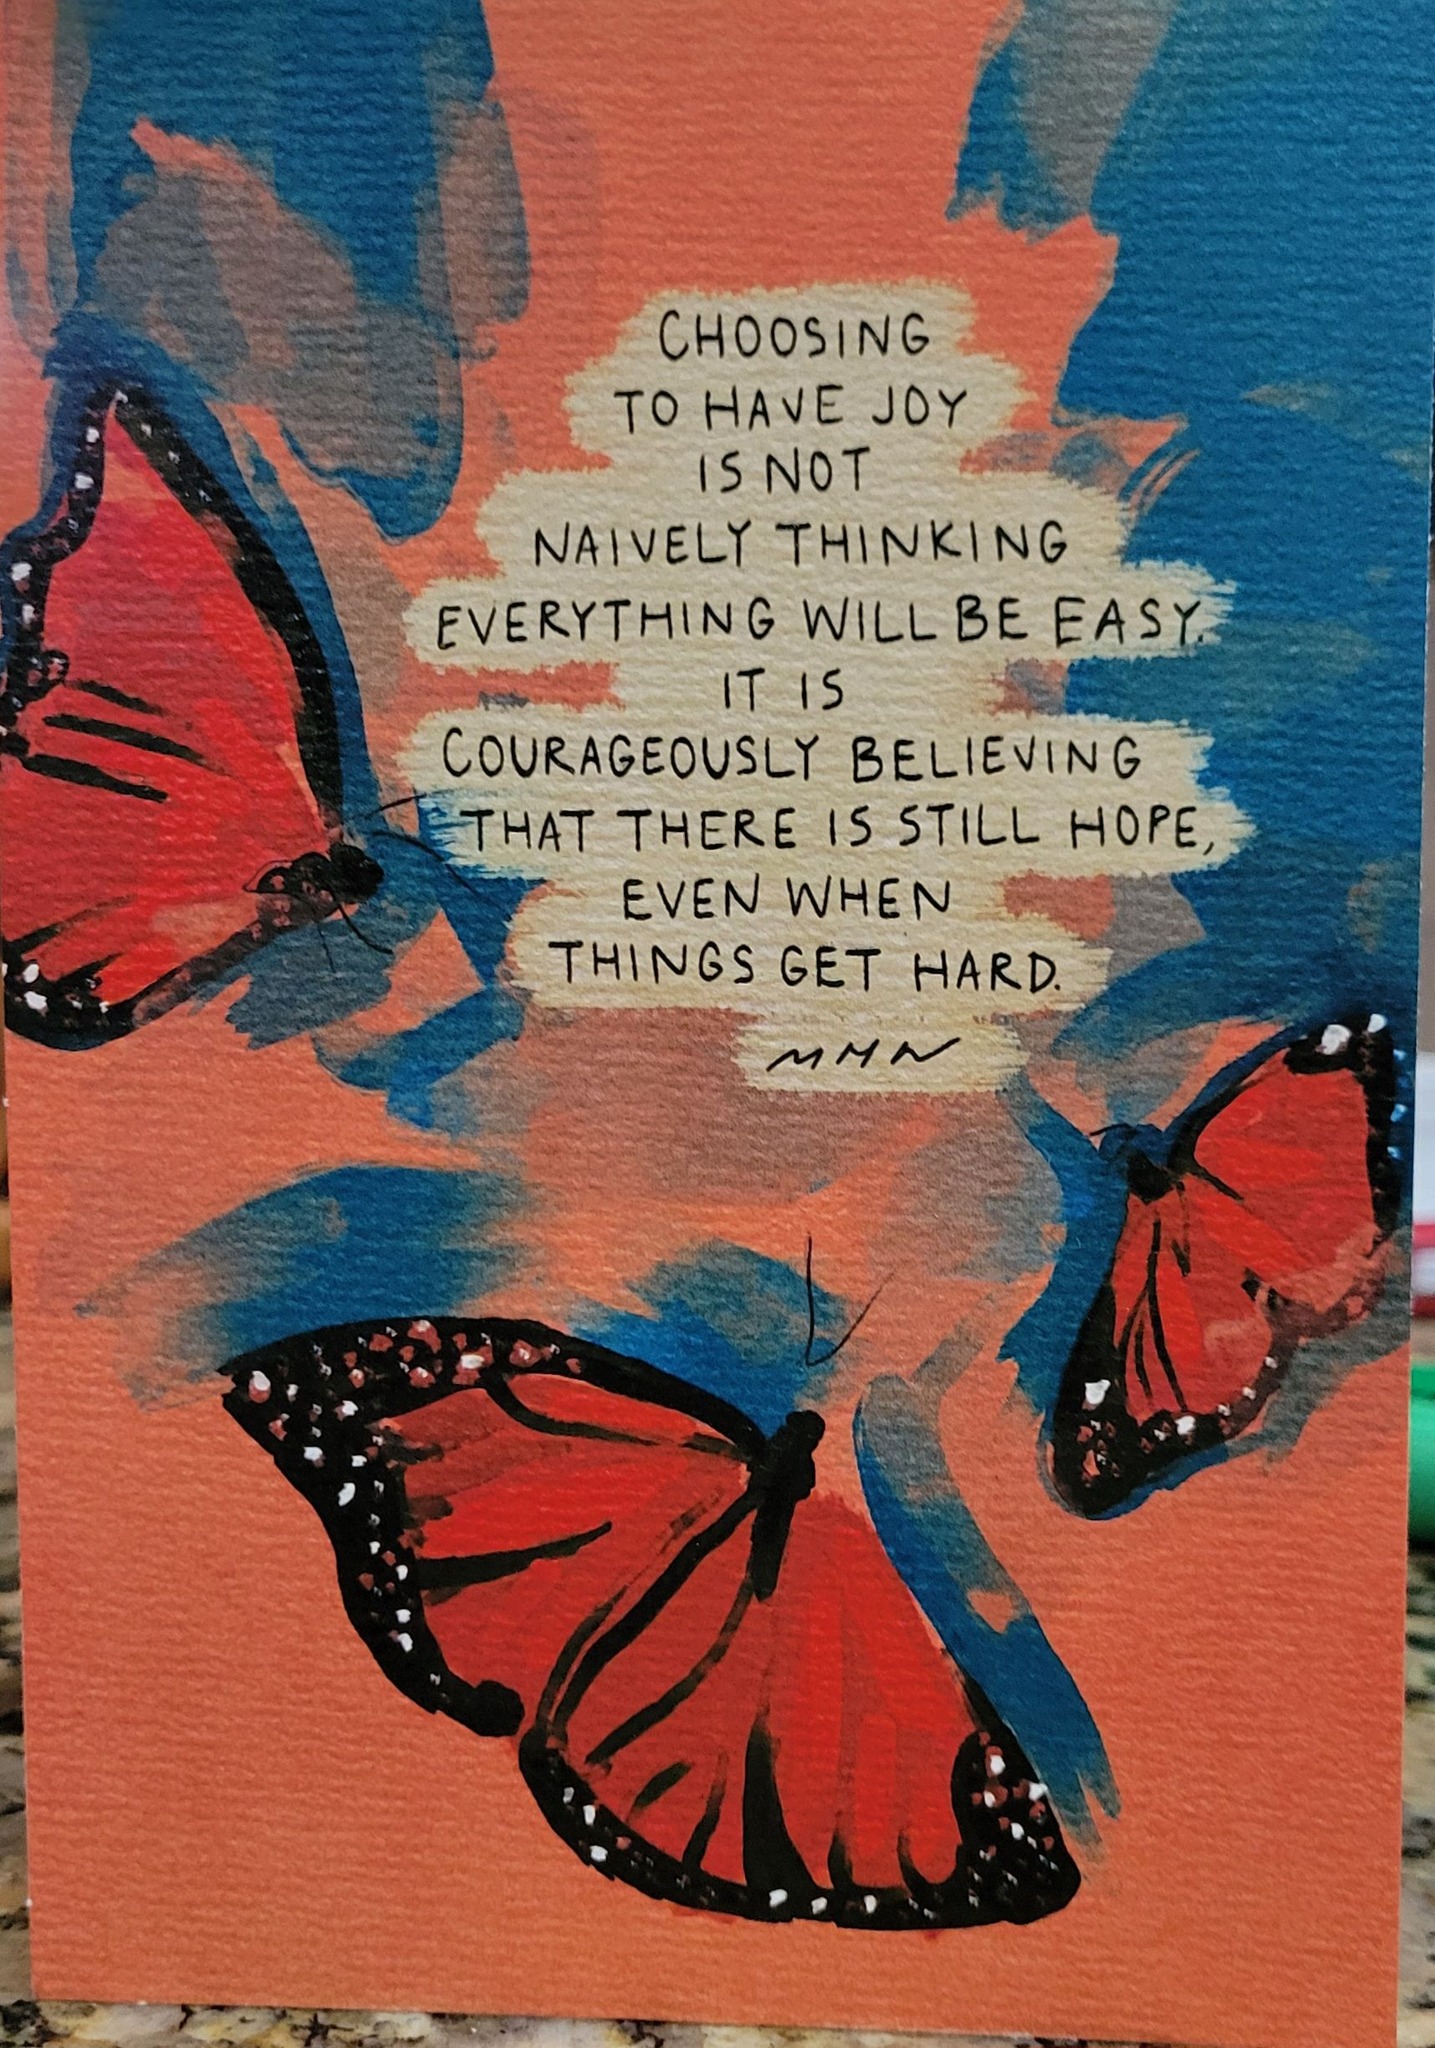 CHOOSING
TO HAVE JOY
IS NOT
NAIVELY THINKING
EVERYTHING WILL BE EASY.
IT IS
COURAGEOUSLY BELIEVING
THAT THERE IS STILL HOPE,
EVEN WHEN
THINGS GET HARD.
MHN